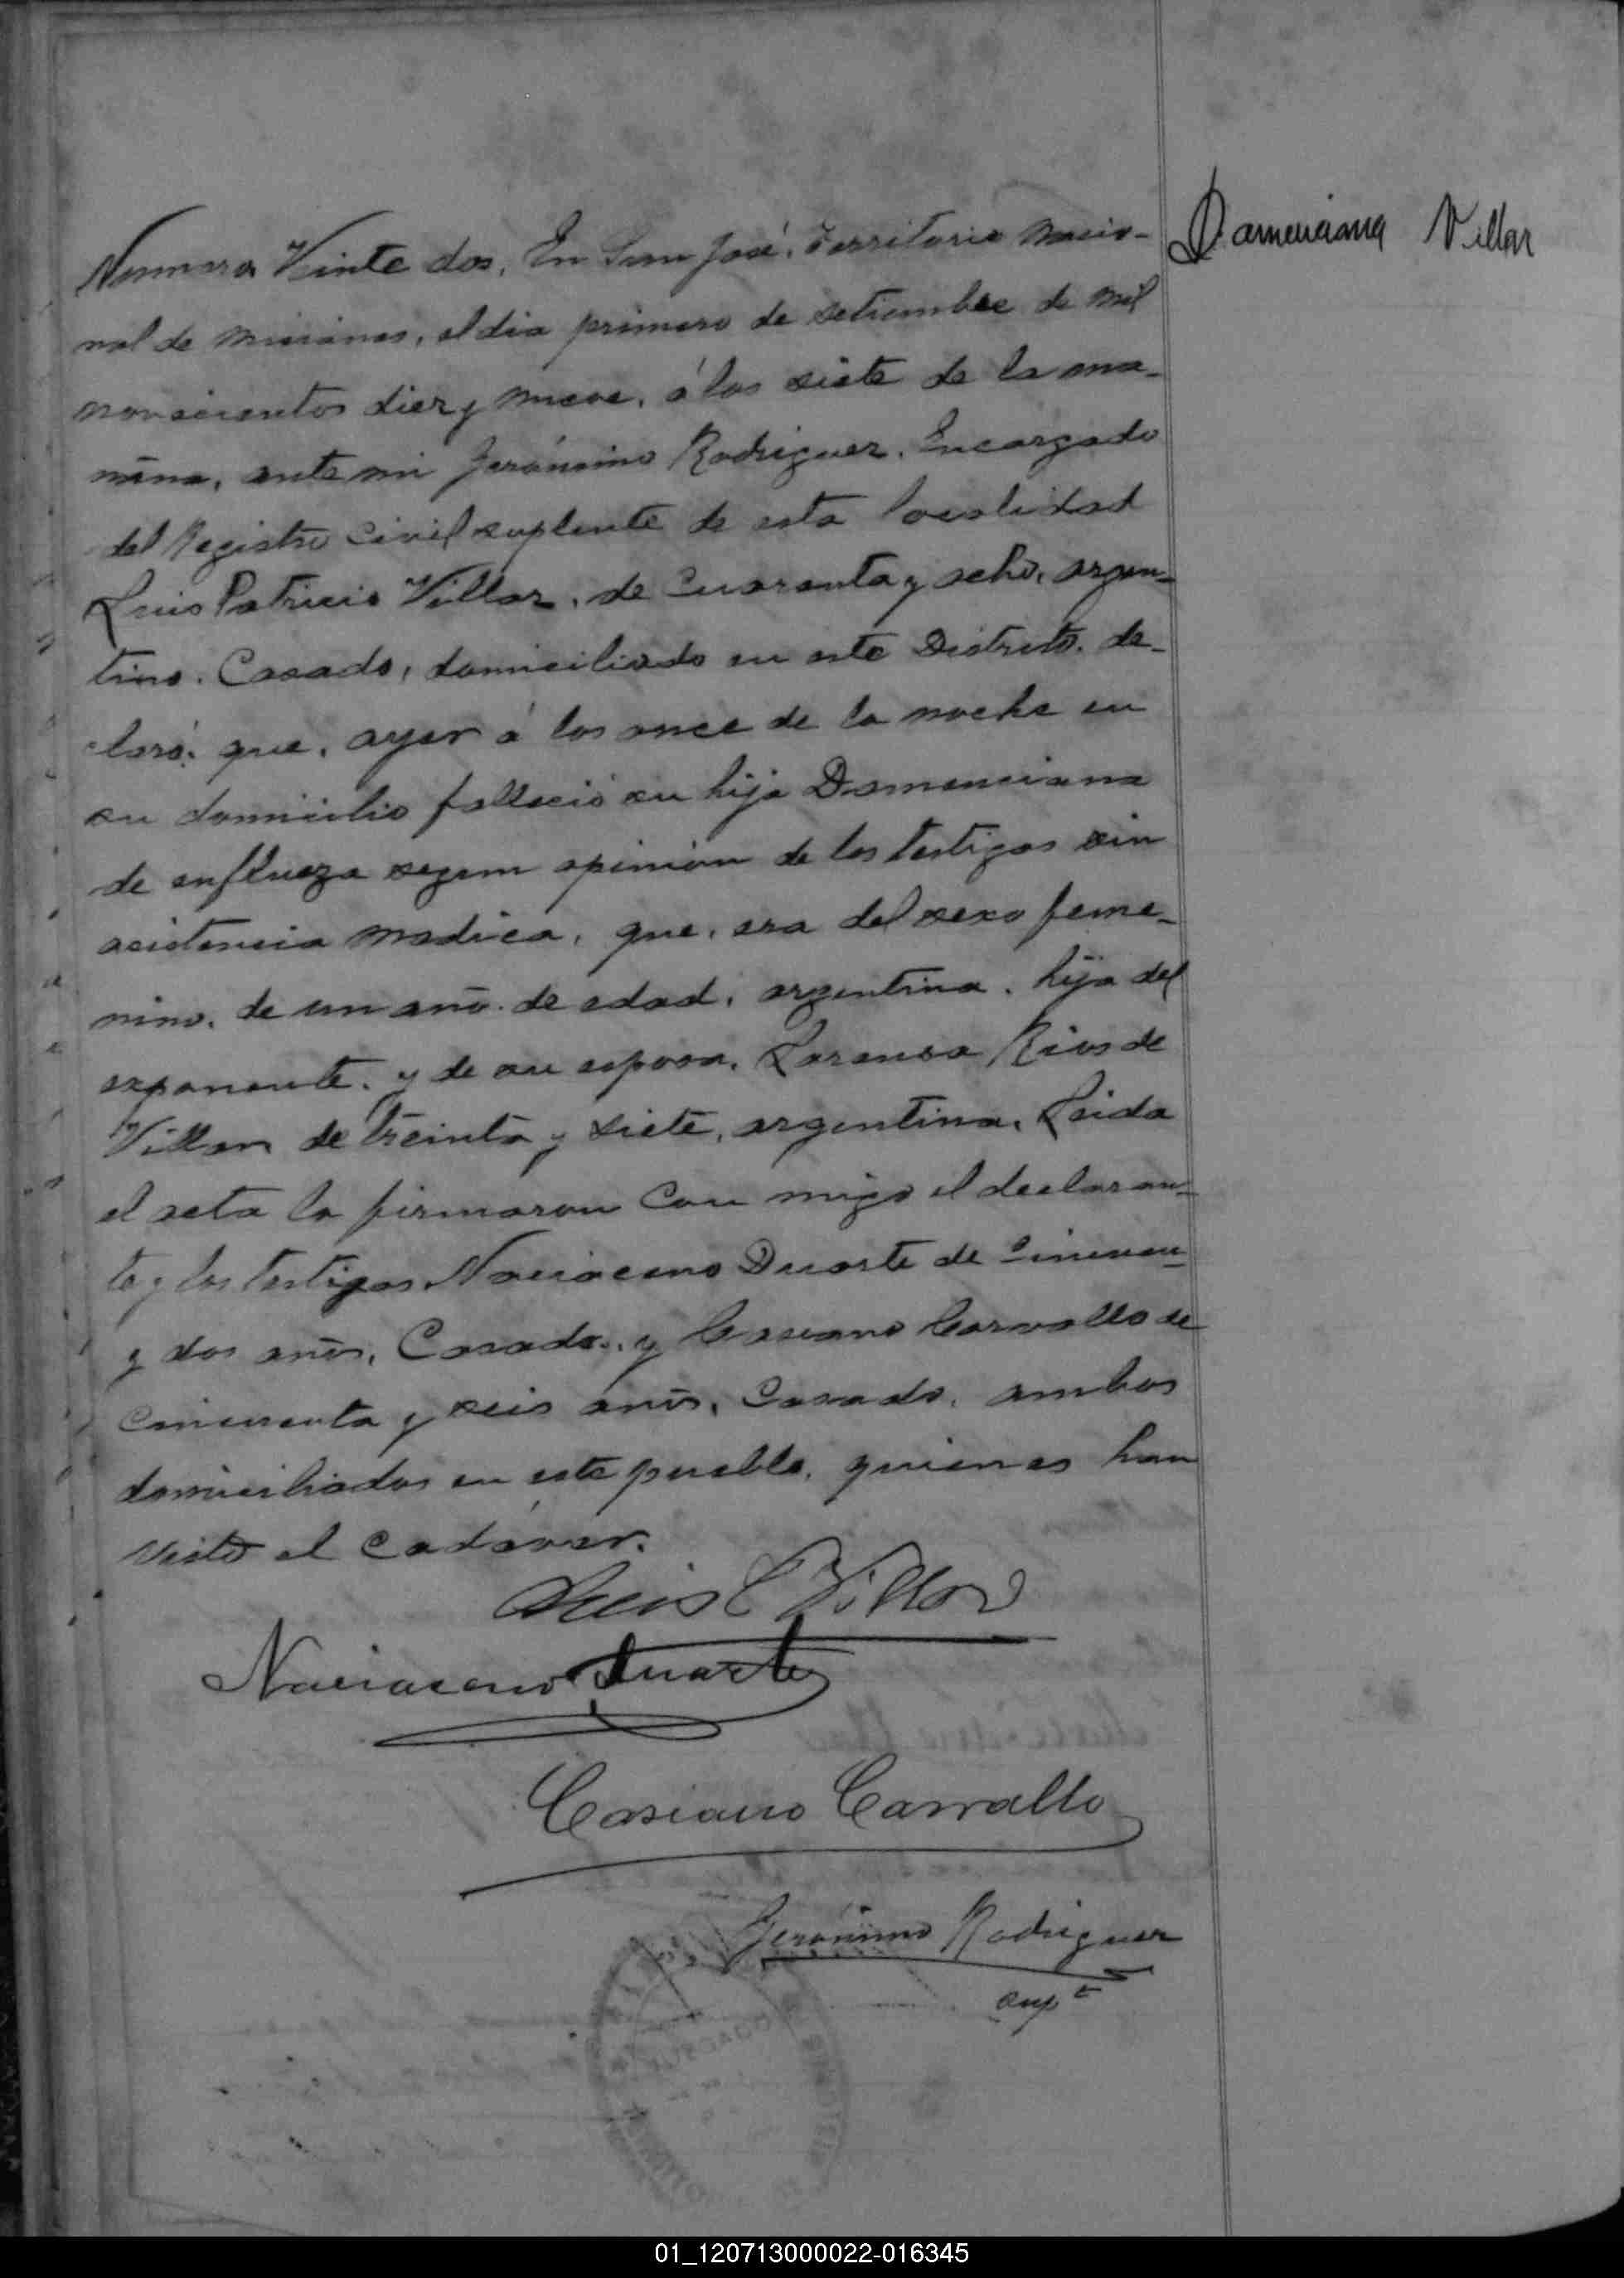 Damenciana Villar
Numero Veinte dos, En San José, Territorio Nacio-
nal de Misiones, el dia primero de setiembre de mil
novecientos diez y nueve, á las siete de la ma-
ñana, ante mi Jerónimo Rodriguez, Encargado
del Registro Civil suplente de esta localidad
Luis Patricio Villar, de cuarenta y ocho, argen-
tino, Casado, domiciliado en este Distrito, de-
claró: que, ayer á las once de la noche en
su domicilio falleció su hija Damenciana
de enflueza segun opinión de los testigos sin
asistencia medica, que, era del sexo feme-
nino, de un año de edad, argentina, hija del
exponente, y de su esposa, Lorensa Rios de
Villar, de treinta y siete, argentina, Leida
el acta la firmaron con migo el declaran-
te y los testigos Naciaceno Duarte de cincuen-
y dos años, Casado, y Casiano Carvallo de
cincuenta y seis años, Casado, ambos
domiciliados en este pueblo, quienes han
visto el cadáver.
Luis P Villar
Naciaceno Duarte
Casiano Carvallo
Jerónimo Rodriguez
supte
01_120713000022-016345